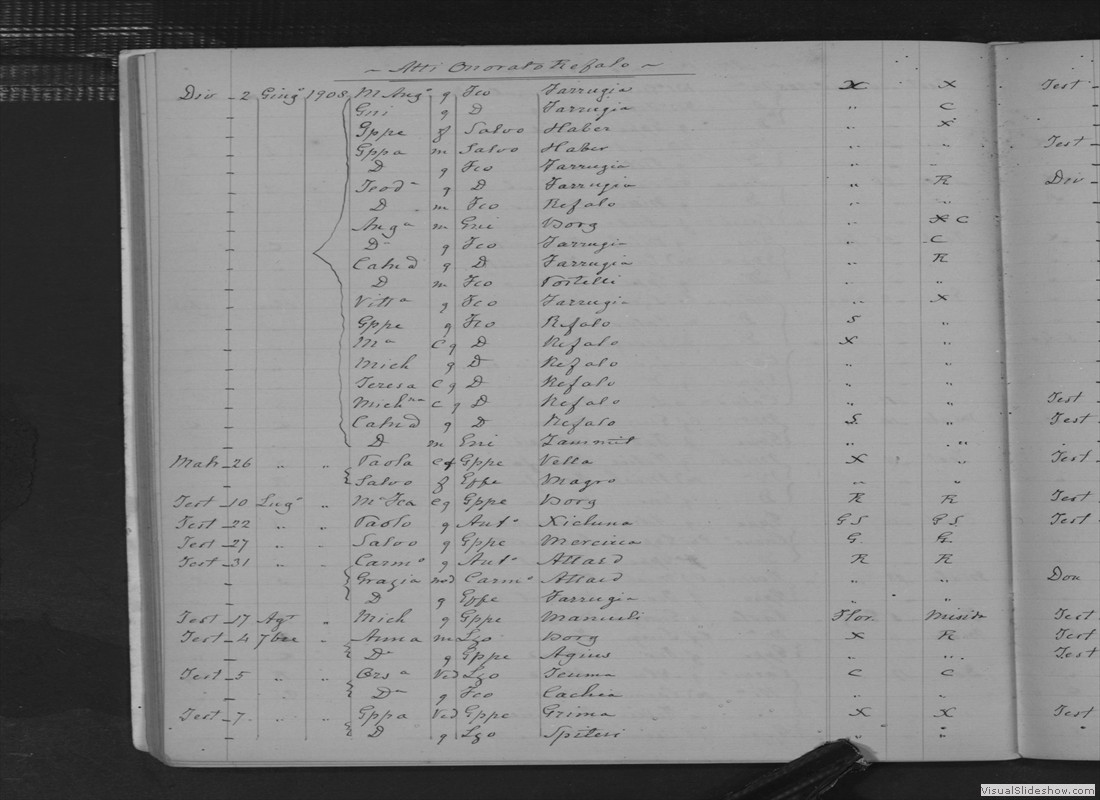 ~ Atti Onorato Refalo ~
Div 2 Giugo 1908 M Anga g Fco Farrugia X X Test
Gni g D Farrugia " C
Gppe f Salvo Haber " X
Gppa m Salvo Haber " " Test
D g Fco Farrugia " "
Teoda g D Farrugia " R Div
D m Fco Refalo " "
Anga m Gni Borg " X C
Da g Fco Farrugia " C
Catnd g D Farrugia " R
D m Fco Portelli " "
Vitta g Fco Farrugia " X
Gppe g Fco Refalo S "
Ma C g D Refalo X "
Mich g D Refalo " "
Teresa C g D Refalo " "
Michna C g D Refalo " " Test
Catnd g D Refalo S. " Test
D m Gni Zammit " "
Mah 26 " " Paola C f Gppe Vella X " Test
Salvo f Gppe Magro " "
Test 10 Lugo " Ma Fca C g Gppe Borg R R Test
Test 22 " " Paolo g Anto Xicluna G S G S Test
Test 27 " " Salvo g Gppe Mercieca G G
Test 31 " " Carmo g Anto Attard R R
Grazia Carmo Attard " " Don
D g Gppe Farrugia " "
Test 17 Agt " Mich g Gppe Manueli Flor. Test
Test 4 7bre " Anna m Lzo Borg X R Test
Da g Gppe Agius " " Test
Test 5 " " Orsa Ved Lzo Teuma C C
Da g Fco Cachia " "
Test 7 " " Gppa Ved Gppe Grima X X Test
D g Lzo Spiteri " "
VisualSlideshow.com